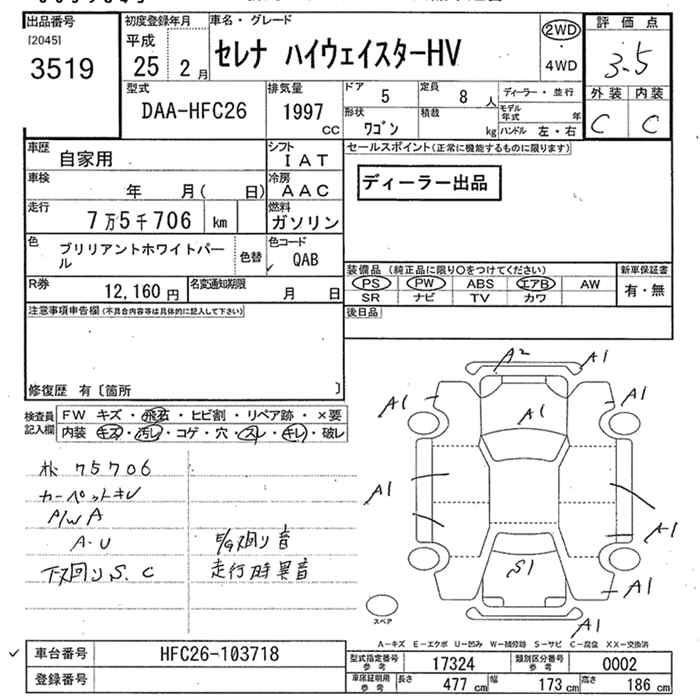 出品番号 初度登録年月 車名・グレード 評価点
[2045] 平成
3519 25 2月 セレナ ハイウェイスターHV 2WD・4WD 3.5
型式 排気量 ドア 定員 ディーラー・並行 外装 内装
DAA-HFC26 1997 cc 5 8人 モデル年式 年 C C
形状 積載 ハンドル 左・右
ワゴン kg
車歴 シフト セールスポイント(正常に機能するものに限ります)
自家用 IAT
車検 冷房 ディーラー出品
年 月( 日) AAC
走行 燃料
7万5千706 km ガソリン
色 色替 色コード
ブリリアントホワイトパール QAB 装備品(純正品に限り○をつけてください) 新車保証書
R券 名変通知期限 PS PW ABS エアB AW 有・無
12,160円 月 日 SR ナビ TV カワ
注意事項申告欄(不具合内容等は具体的に記入して下さい) 後日品
修復歴 有〔箇所 〕
検査員記入欄 FW キズ・飛石・ヒビ割・リペア跡・×要
内装 キズ・汚レ・コゲ・穴・スレ・キレ・破レ
75706
カーペットキレ
P/W A
A-U
下回りS.C
E/g廻り音
走行時異音
A2 A1
A1 A1 A1
A1 A1
S1 A1
A1
スペア
A-キズ E-エクボ U-凹み W-補修跡 S-サビ C-腐食 XX-交換済
車台番号 HFC26-103718 型式指定番号参考 17324 類別区分番号参考 0002
登録番号 車庫証明用参考 長さ 477cm 幅 173cm 高さ 186cm